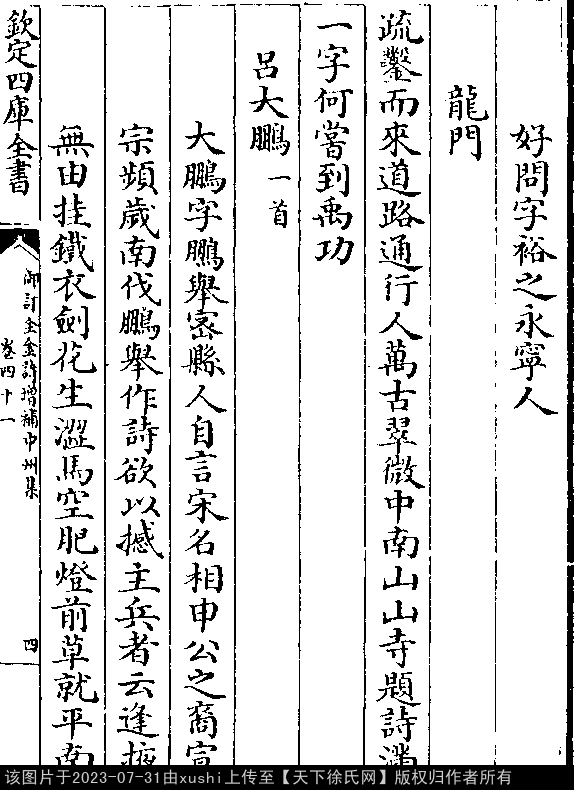 好問字裕之永寧人
龍門
疏鑿而來道路通行人萬古翠微中南山山寺題詩滿
一字何嘗到禹功
呂大鵬一首
大鵬字鵬舉密縣人自言宋名相申公之裔宣
宗頻歲南伐鵬舉作詩欲以撼主兵者云逢掖
無由挂鐵衣劍花生澀馬空肥燈前草就平南
欽定四庫全書
御訂全金詩增補中州集
卷四十一
四
该图片于2023-07-31由xushi上传至【天下徐氏网】版权归作者所有